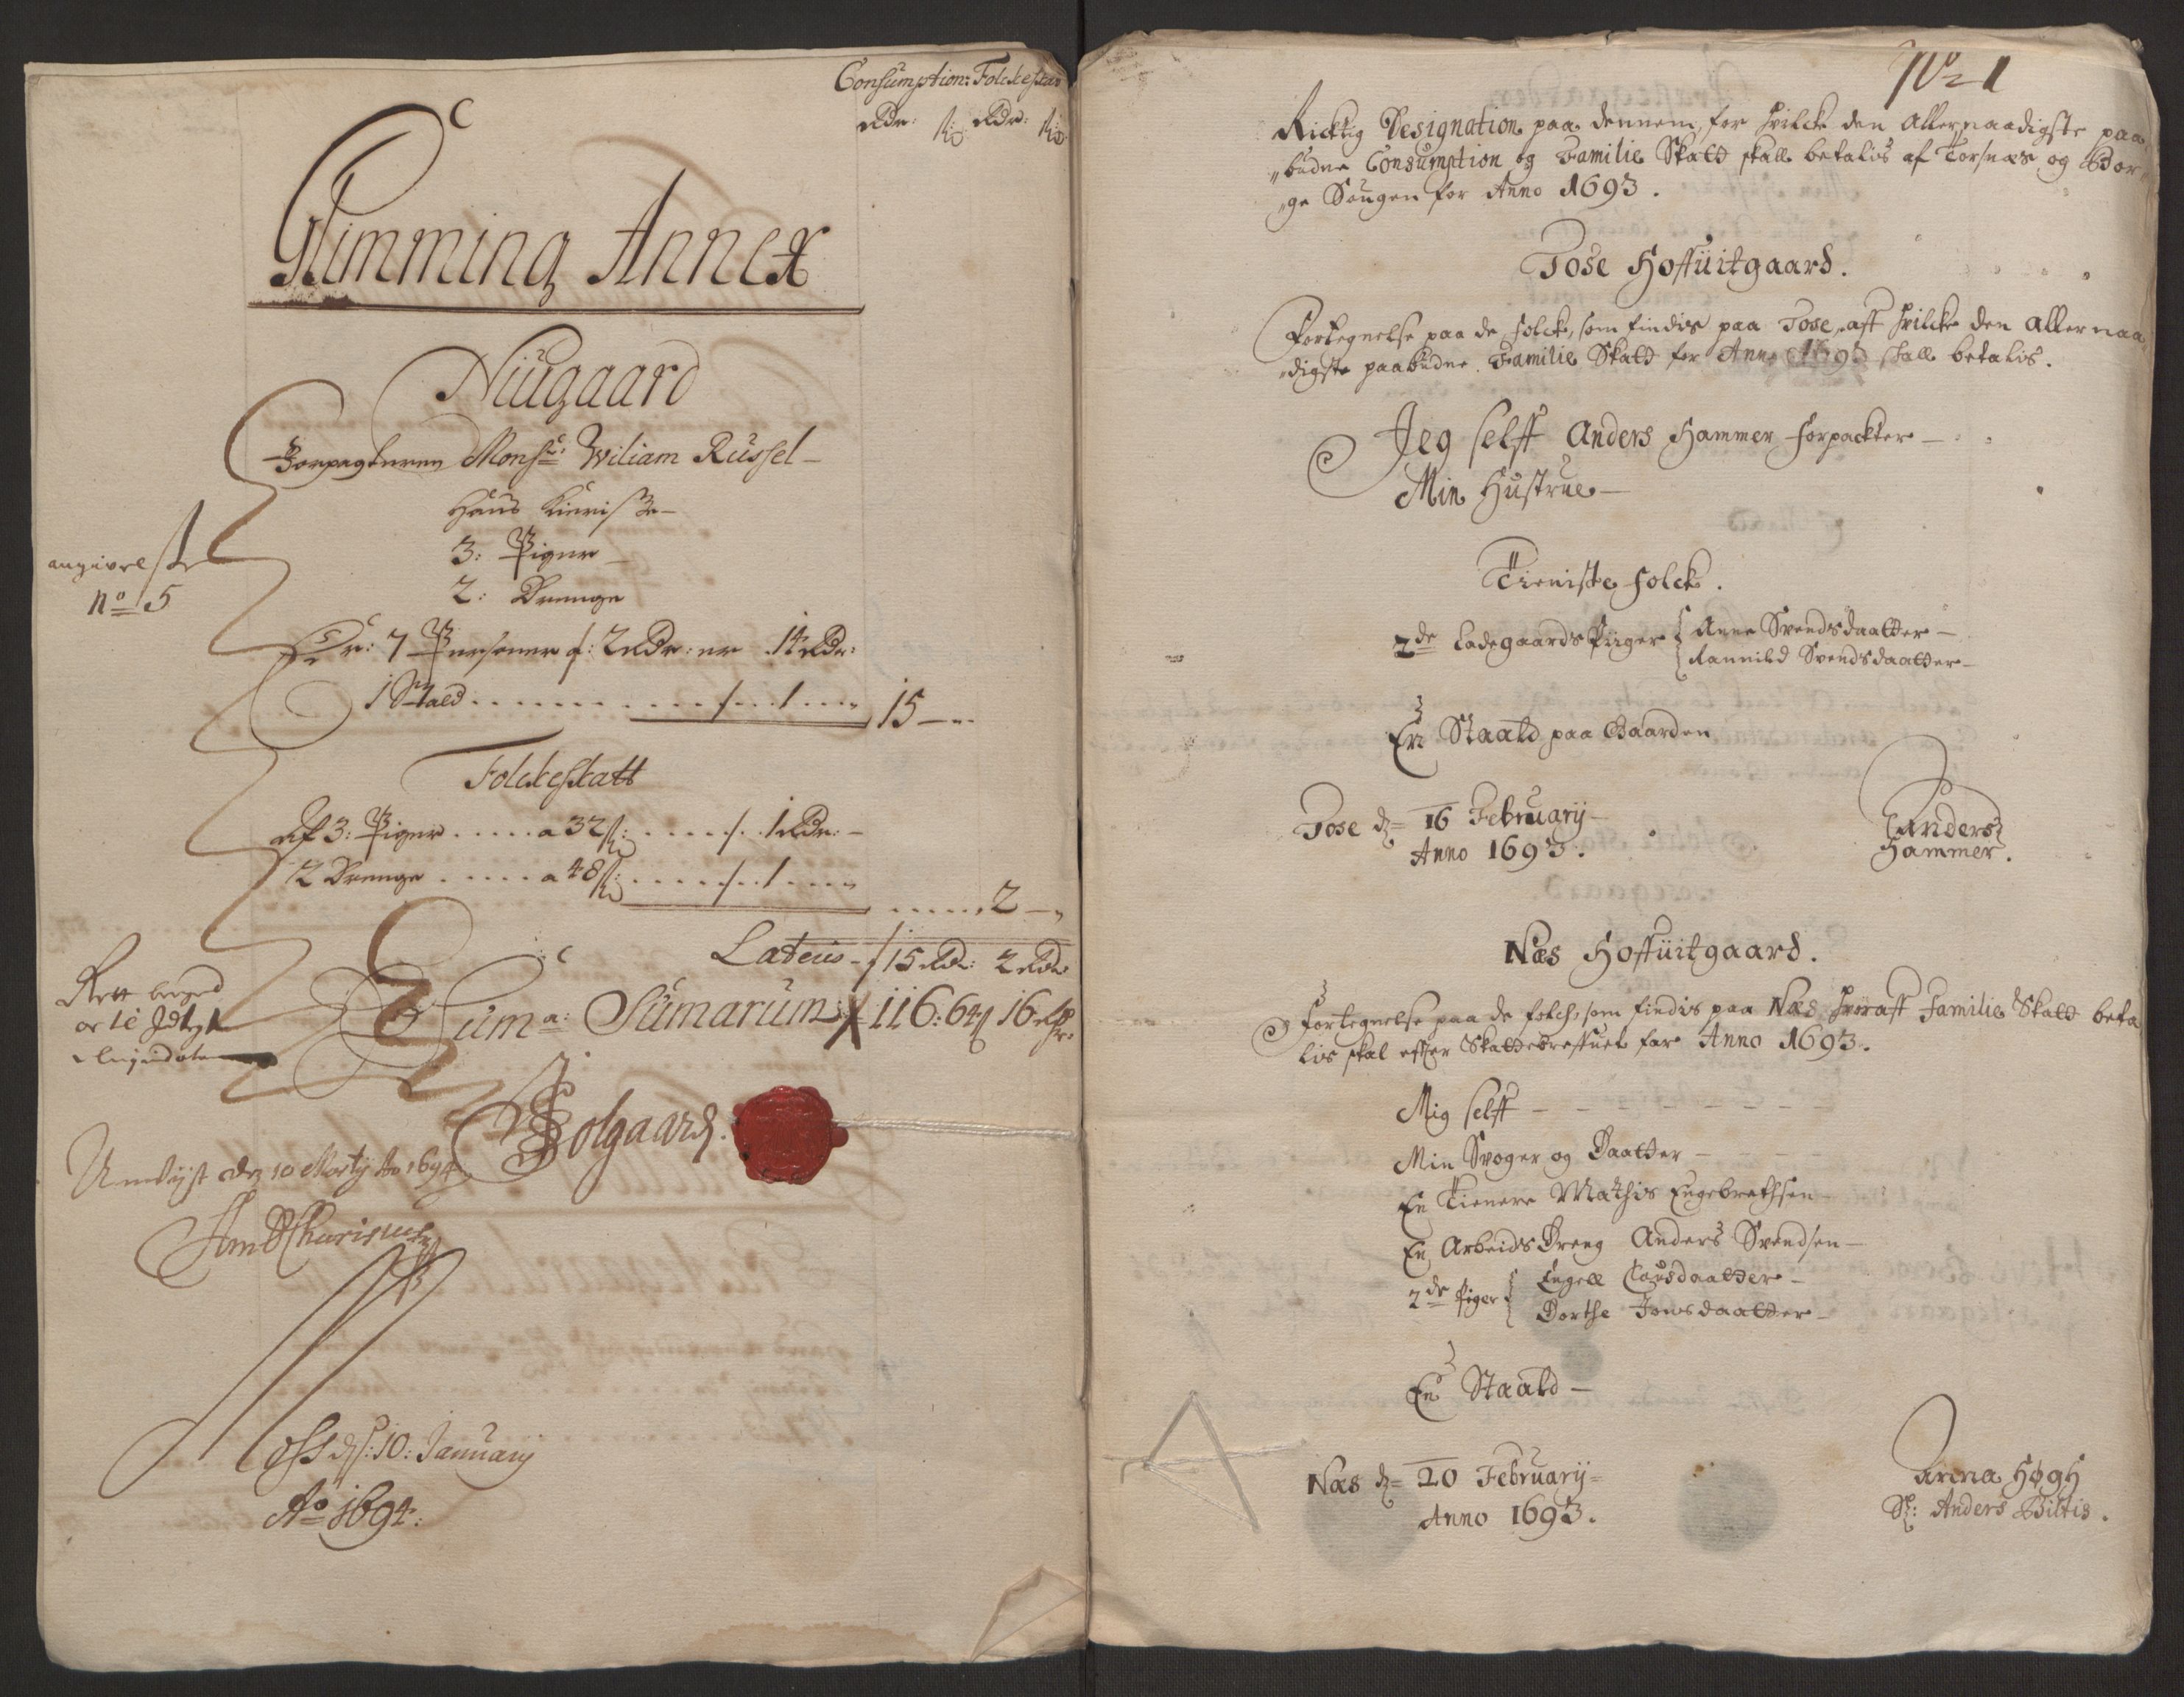 Consumption: Folckeskat
Rdr: ß Rdr: ß
Glimming Annex
Niugaard
Forpagteren Monsr: Wiliam Russel
Hans Kieriste
3: Piger
2: Drenge
angivelse
No 5
Er: 7 Personer a: 2 Rdr: er 14 Rdr:
1 Stald . . . . . . . 1 . . . 15 —
Folckeskatt
Af 3: Piger . . . . . a 32 ß: . . . . 1 Rdr: —
2 Drenge . . . . . a 48 ß: . . . . 1 . . .
. . . . . 2 —
Lateris — 15 Rdr: 2 Rdr
Suma: Sumarum 116: 64 ß 16 Rdr
Rett
Bolgaard.
dn 10 Marty Ao 1694
d: 10: January
Ao 1694:
No 1
Ricktig Designation paa dennem, for hvilcke den Allernaadigste paa
budne Consumption og Familie Skatt skall betalis af Torsnæs og Bor
ge Sougen for Anno 1693.
Tose Hoffuitgaard.
Fortegnelse paa de folck, som findis paa Tose, aff hvilcke den Allernaa
digste paabudne Familie Skatt for Anno 1693 skall betalis.
Jeg selff Anders Hammer forpackter —
Min Hustrue —
Tieniste folck.
2de LadegaardsPiiger { Anne Svendsdaatter —
Rannild Svendsdaatter —
En Staald paa Gaarden
Tose d= 16 February —
Anno 1693.
Anders
Hammer.
Næs Hoffuitgaard.
Fortegnelse paa de folck, som findis paa Næs, hvoraff Familie Skatt beta
lis skal effter Skattebreffuet for Anno 1693.
Mig selff — — — — — — — —
Min Svoger og Daatter — — — —
En Tienere Mathis Engebrethsen
En ArbeidsDreng Anders Svendsen —
2de Piger { Engell Clausdaatter —
Dorthe Jonsdaatter —
En Staald —
Næs d= 20 February =
Anno 1693.
Anna Høgh
Sl: Anders Biltis.